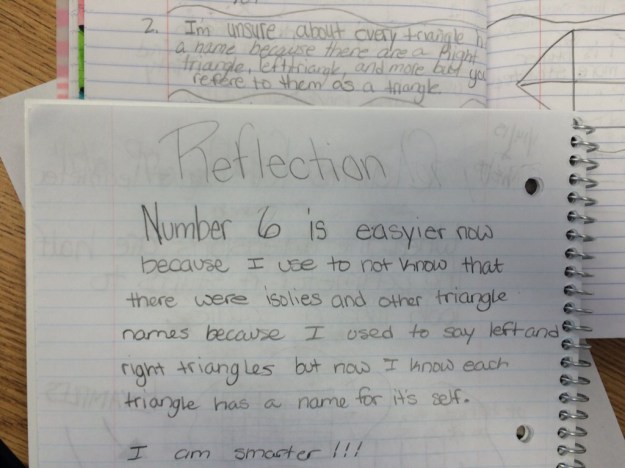 2. I'm unsure about every triangle h
a name because there are a Right
triangle, left triangle, and more but you
refere to them as a triangle.
Reflection
Number 6 is easyier now
because I use to not know that
there were isolies and other triangle
names because I used to say left and
right triangles but now I know each
triangle has a name for it's self.
I am smarter !!!